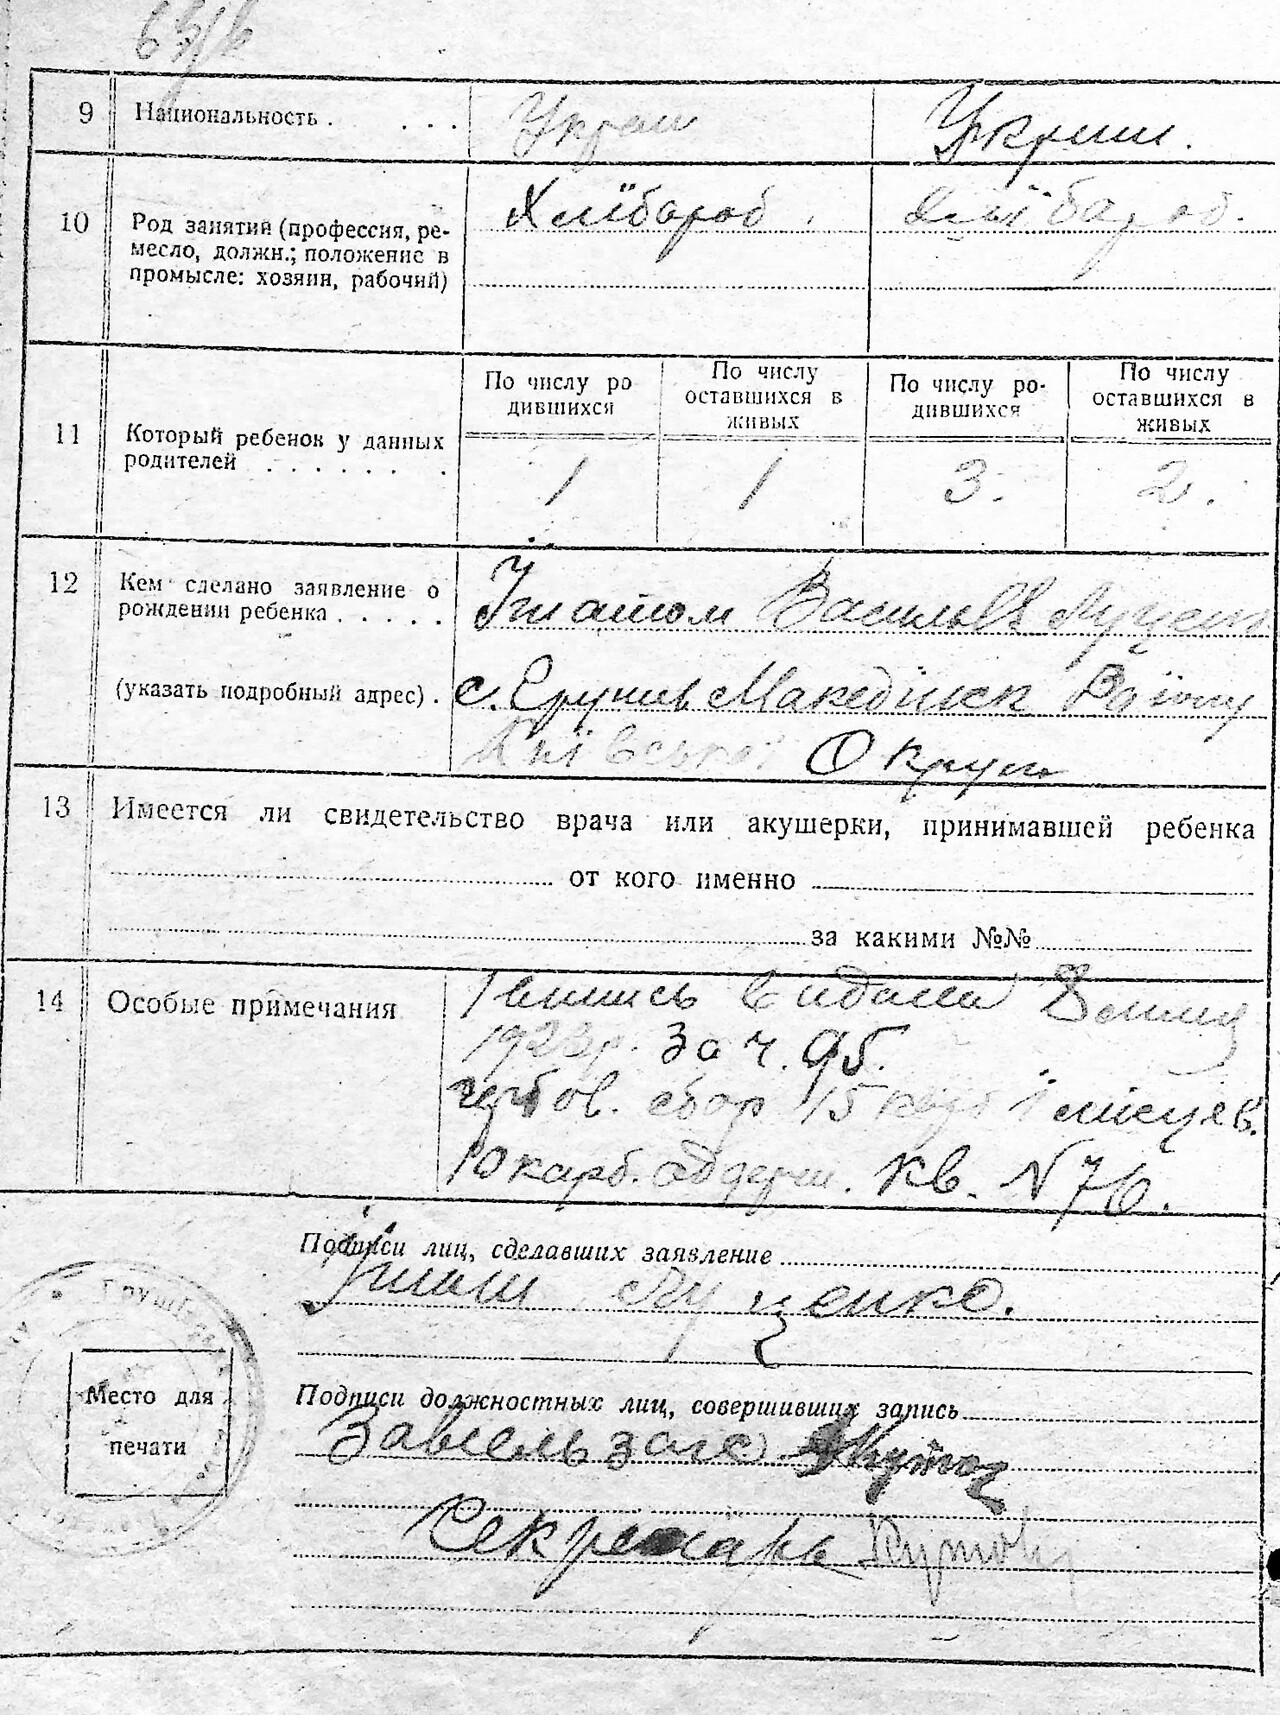 9 Национальность . . . . Укреин Укреин.
10 Род занятий (профессия, ре-
месло, должн.; положение в
промысле: хозяин, рабочий)
Хлібороб . Хлібороб.
11 Который ребенок у данных
родителей . . . . . . . .
По числу ро
дившихся
По числу
оставшихся в
живых
По числу ро-
дившихся
По числу
оставшихся в
живых
1 1 3. 2.
12 Кем сделано заявление о
рождении ребенка . . . . .
Василів Луценко
(указать подробный адрес) . с. Македінск Району
Київської Округи
13 Имеется ли свидетельство врача или акушерки, принимавшей ребенка
от кого именно
за какими №№
14 Особые примечания
видана
за ч. 95.
гербов. сбор 15 і місцев.
10 карб. кв. N 76.
Подписи лиц, сделавших заявление
Луценко.
Место для
печати
Подписи должностных лиц, совершивших запись
загс
Секретарь